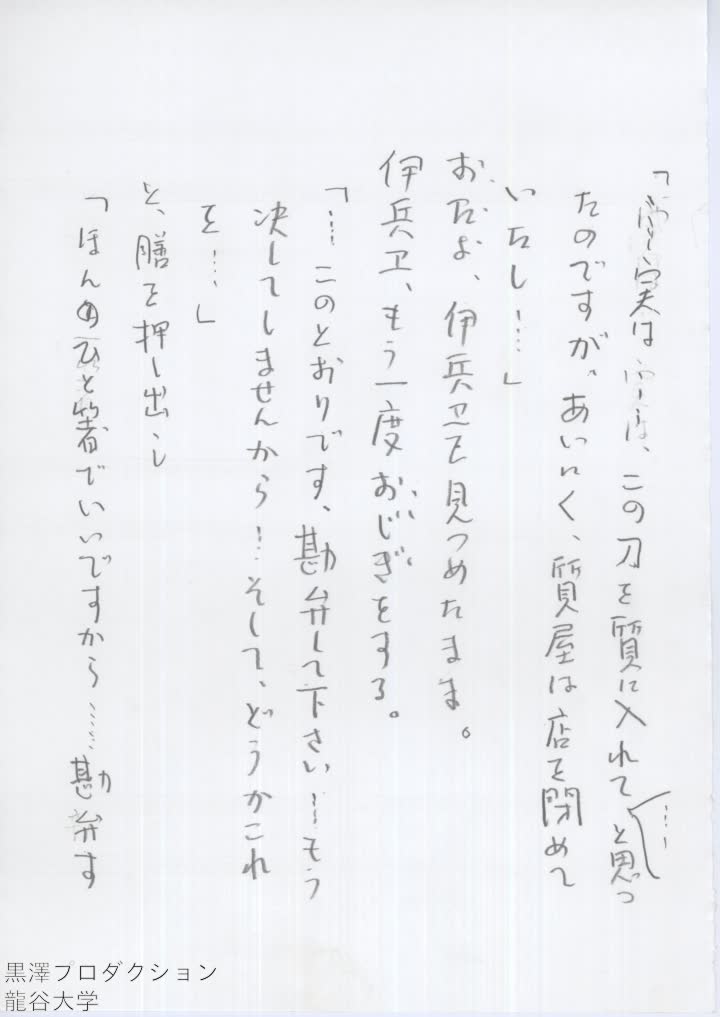 「実は、この刀を質に入れて……と思っ
たのですが。あいにく、質屋は店を閉めて
いたし……」
おたよ、伊兵ヱを見つめたまま。
伊兵ヱ、もう一度おじぎをする。
「……このとおりです、勘弁して下さい……もう
決してしませんから……そして、どうかこれ
を……」
と、膳を押し出し
「ほんのひと箸でいいですから……勘弁す
黒澤プロダクション
龍谷大学